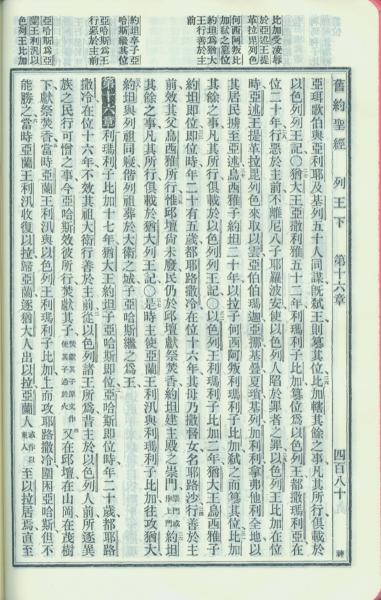 比加受凌辱
於亞述王提
革拉毘列色
何西阿叛比
加弒之篡位
約坦為猶大
王行善於主
約坦卒子亞
哈斯繼其位
亞哈斯爲王
行惡於主前
亞蘭王利汎以
色列王比加
舊約聖經 列王下 第十六章 四百八十
亞珥歌伯與亞利耶及基列五十人同謀旣弒王則篡其位比加轄其餘之事凡其所行俱載於
以色列列王記〇猶大王亞撒利雅五十二年利瑪利子比加篡位爲以色列王都撒瑪利亞在
位二十年行惡於主前不離尼八子耶羅波安使以色列人陷於罪者之罪以色列王比加在位
時亞述王提革拉毘列色來取以雲亞伯伯瑪迦亞挪基疊夏瑣基列加利利拿弗他利全地以
其居民擄至亞述烏西雅子約坦二十年以拉子何西阿叛利瑪利子比加弒之而篡其位比加
其餘之事凡其所行俱載於以色列列王記〇以色列王利瑪利子比加二年猶大王烏西雅子
約坦即位即位時年二十有五歲都耶路撒冷在位十六年其母乃撒督女名耶路沙行善於主
前效其父烏西雅所行惟邱壇尚未廢民仍於邱壇獻祭焚香約坦建主殿之崇門約坦
其餘之事凡其所行俱載於猶大列王記〇是時主使亞蘭王利汎與利瑪利子比加往攻猶大
約坦與列祖同寢偕列祖葬於大衛之城子亞哈斯繼之爲王
第十六章 利瑪利子比加十七年猶大王約坦子亞哈斯即位亞哈斯即位時年二十歲都耶路
撒冷在位十六年不效其祖大衛行善於主前從以色列諸王所爲昔主於以色列人前所逐異
族之民行可憎之事今亞哈斯效彼所行焚獻其子又在邱壇在山岡在茂樹
下獻祭焚香當時亞蘭王利汎與以色列王利瑪利子比加上而攻耶路撒冷圍困亞哈斯但不
能勝之當時亞蘭王利汎收復以拉歸亞蘭逐猶大人出以拉亞蘭人至以拉居焉直至